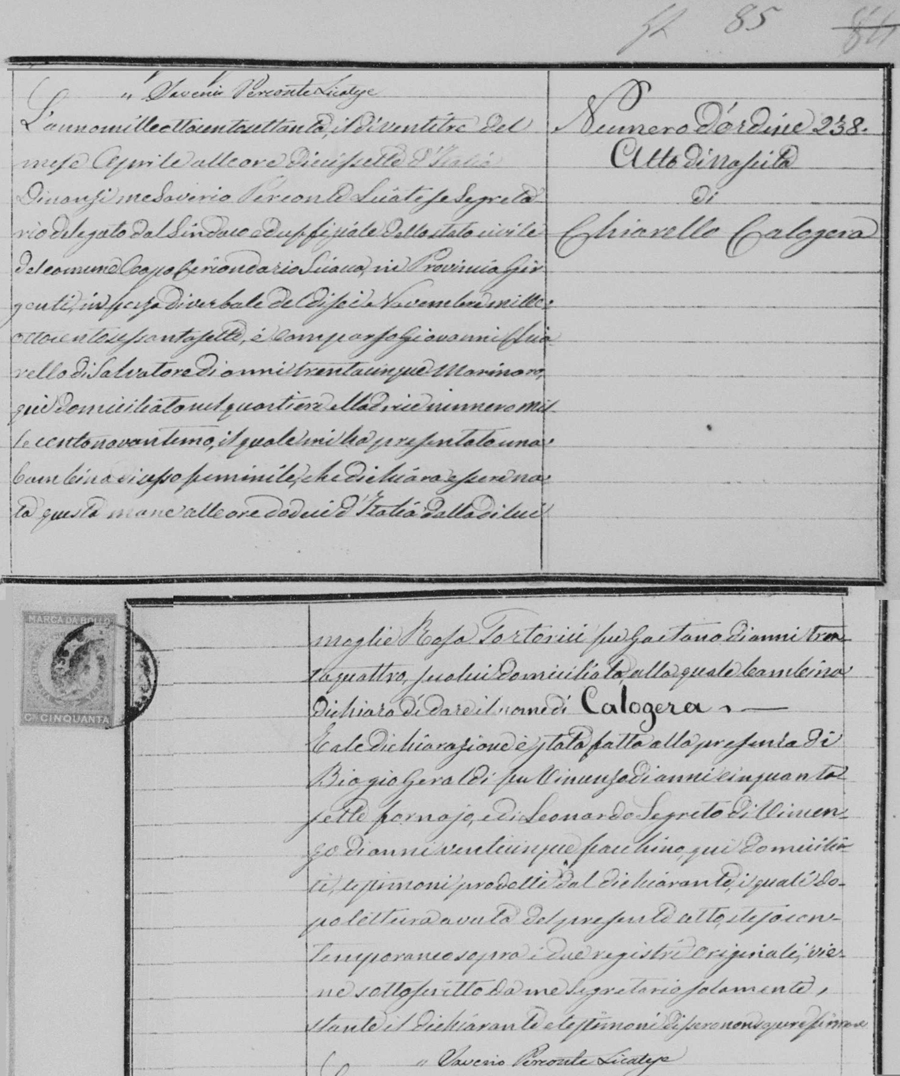 85 84
" Saverio Perconte Licatese
L'anno mille ottocento settanta, il dì ventitre del
mese Aprile alle ore diecisette d'Italia
Dinanzi me Saverio Perconte Licatese Segreta
rio delegato dal Sindaco ed uffiziale dello stato civile
del comune Capo Circondario Sciacca, in Provincia Gir
genti, in forza di verbale de' dieci Novembre mille
ottocento sessantasette, è comparso Giovanni Chia
rello di Salvatore di anni trentacinque Marinaro,
qui domiciliato nel quartiere Madrice numero mil
le centonovantuno, il quale mi ha presentato una
bambina di sesso feminile, che dichiara essere na
ta questa mane alle ore dodici d'Italia dalla di lui
Numero d'ordine 238.
Atto di nascita
di
Chiarello Calogera
MARCA DA BOLLO
CMI CINQUANTA
moglie Rosa Tortorici fu Gaetano di anni tren
taquattro, seco lui domiciliata, alla quale bambina
dichiara di dare il nome di Calogera
E tale dichiarazione è stata fatta alla presenza di
Biagio Geraldi fu Vincenzo di anni cinquanta
sette fornajo, e di Leonardo Segreto di Vincen-
zo di anni venticinque facchino, qui domicilia-
ti, testimoni prodotti dal dichiarante, i quali do-
po lettura avuta del presente atto, steso con-
temporaneo sopra i due registri originali, vie-
ne sottoscritto da me Segretario solamente,
stante il dichiarante e testimoni dissero non sapere firmare
" Saverio Perconte Licatese